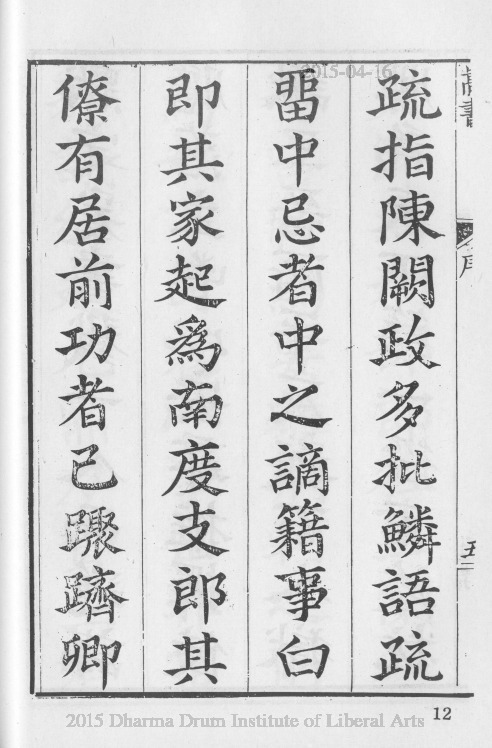 疏指陳闕政多批鱗語疏
畱中忌者中之謫籍事白
即其家起爲南度支郎其
僚有居前功者已驟躋卿
序
五
2015-04-16
12
2015 Dharma Drum Institute of Liberal Arts